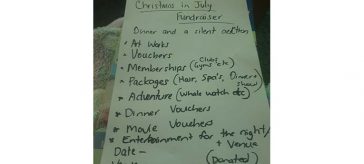 Christmas in July
Fundraiser
Dinner and a silent auction
* Art Works
* Vouchers
* Memberships (Clubs, Gyms etc)
* Packages (Hair, Spa's, Dinner & show)
* Adventure (whale watch etc)
* Dinner Vouchers
* Movie Vouchers
* Entertainment for the night/
+ Venue
Date - (Donated)